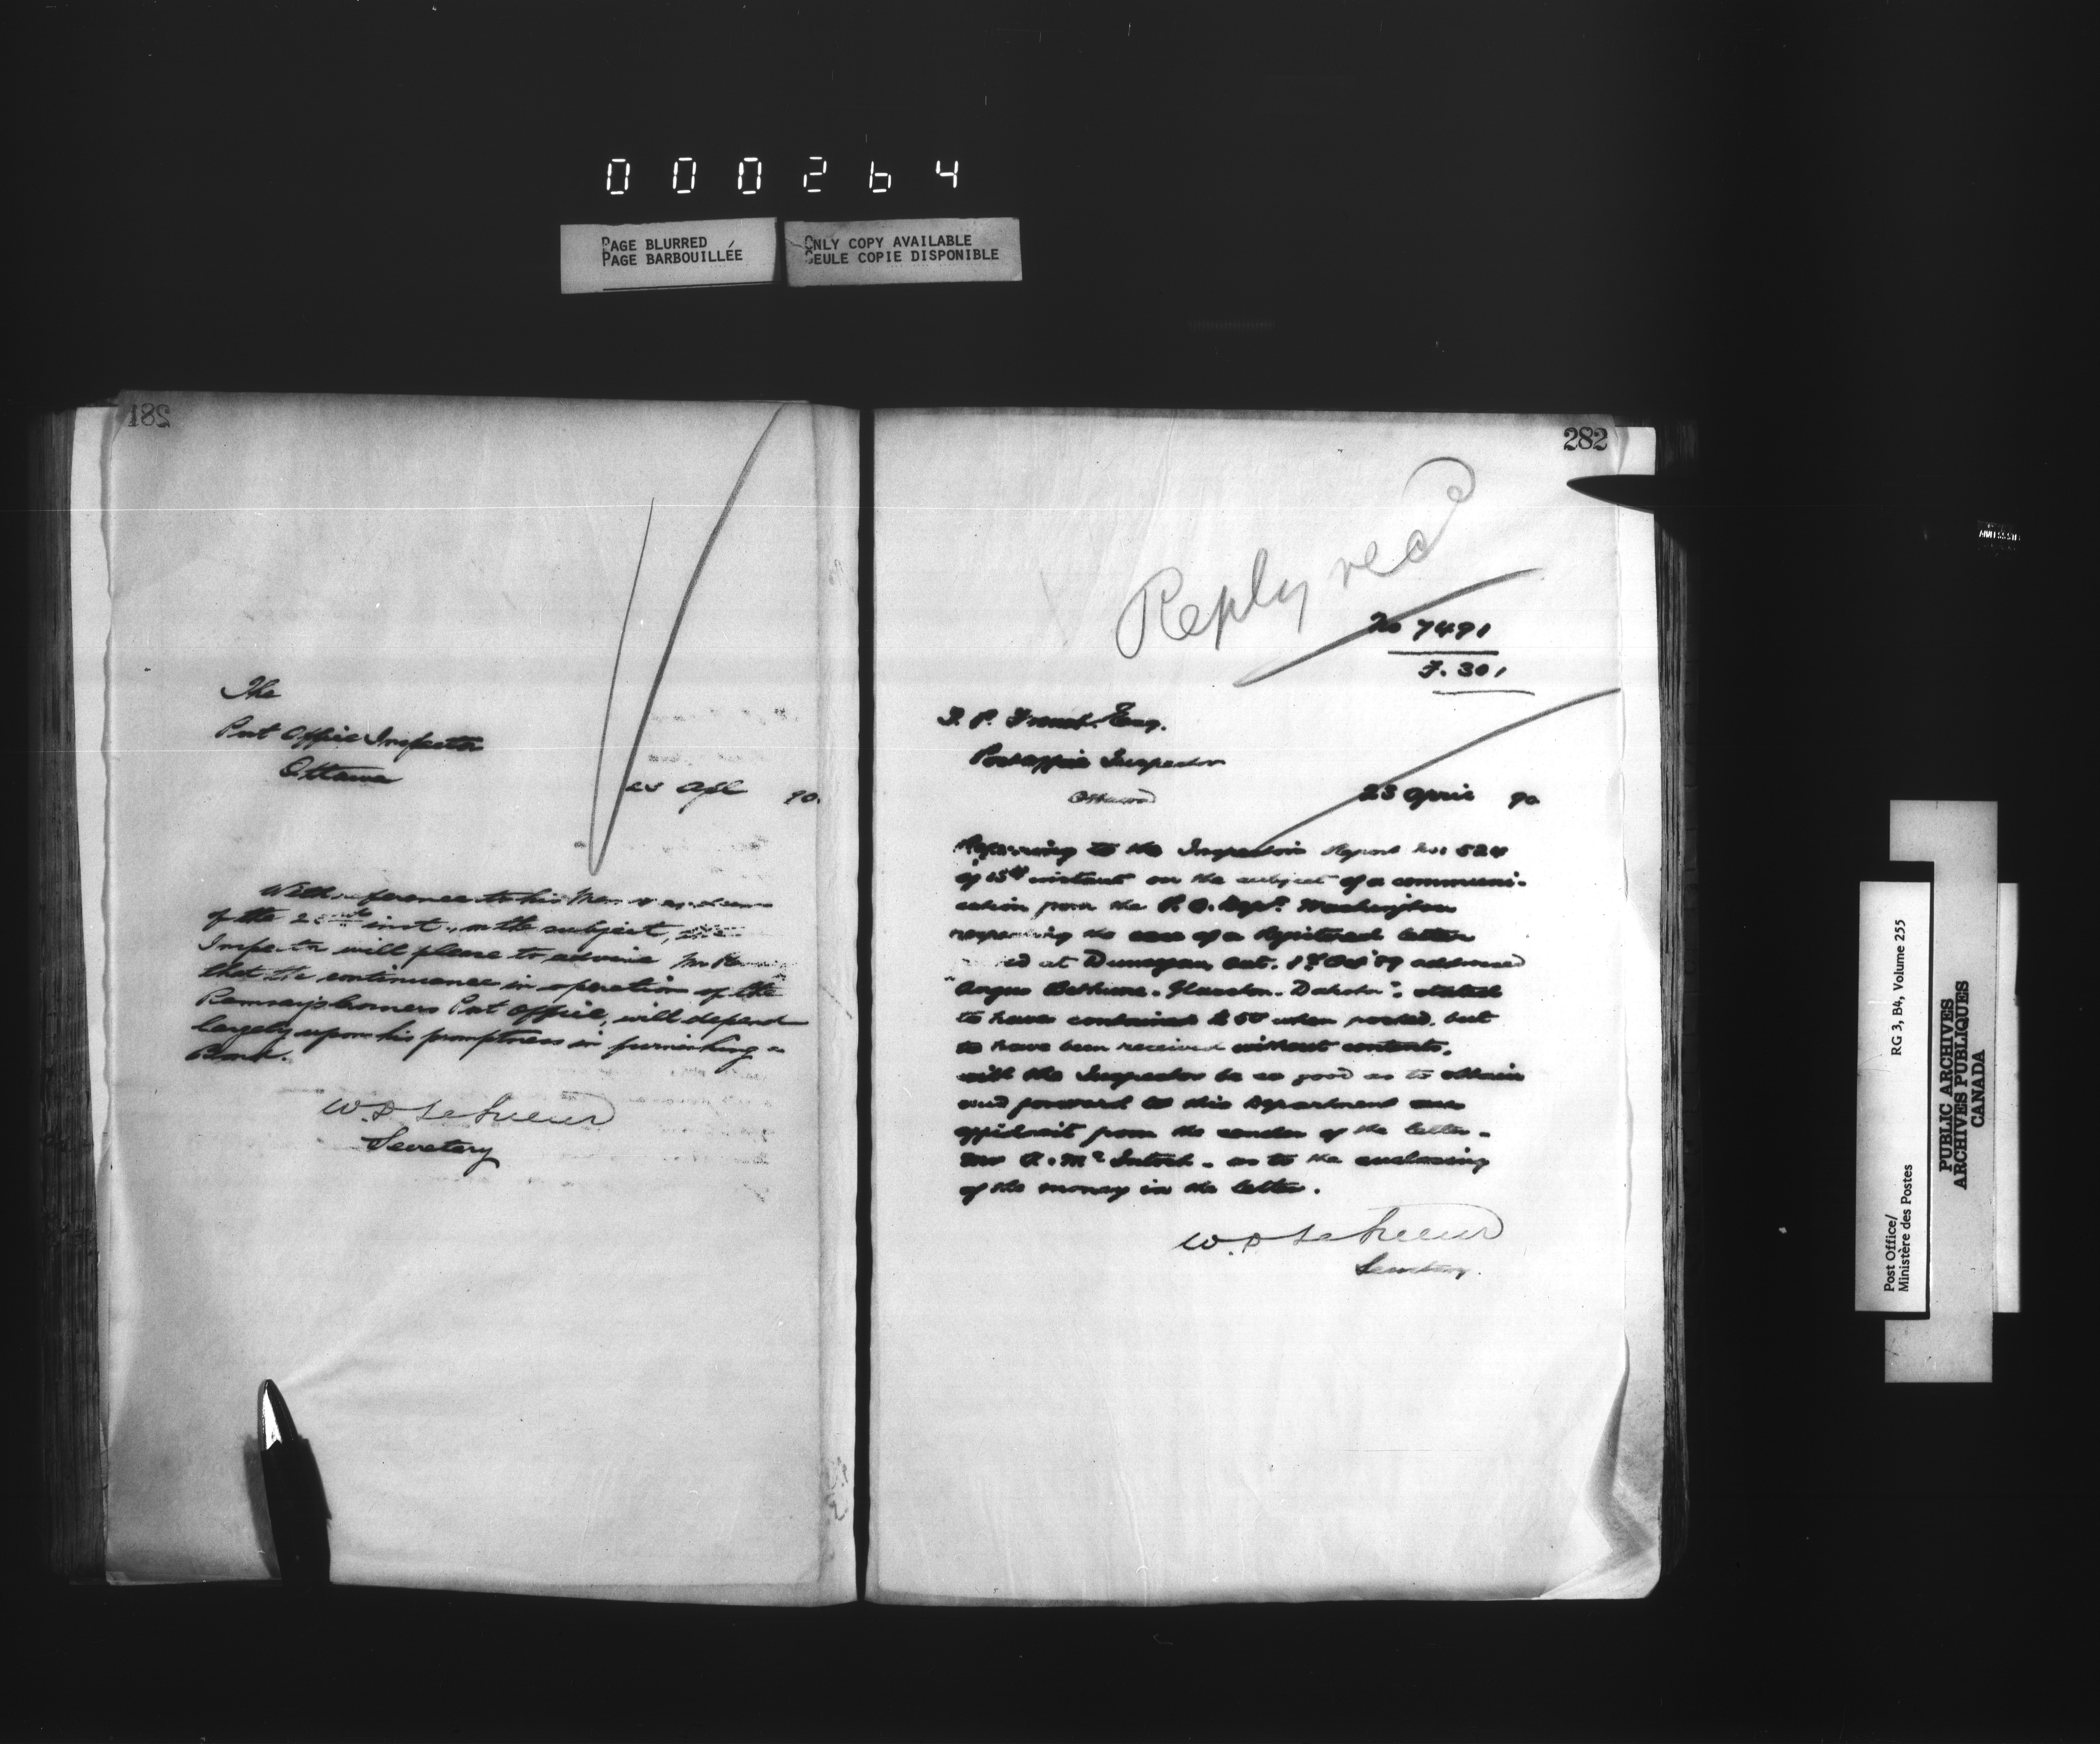 000264
PAGE BLURRED
PAGE BARBOUILLÉE
ONLY COPY AVAILABLE
SEULE COPIE DISPONIBLE
281
The
Post Office Inspector
Ottawa
Apl 90.
With reference to his Memorandum
of the inst., on the subject, the
Inspector will please to advise Mr
that the continuance in operation of the
Ramsay's Corners Post Office, will depend
largely upon his promptness in furnishing a
Bond.
W. D. LeSueur
Secretary
282
Reply recd
No 7491
F. 301
T. P. French Esq.
Post Office Inspector
Ottawa
23 April 90
Referring to the Inspector's Report No: 524
of 15th instant on the subject of a communi-
cation from the P. O. Dept. Washington
respecting the case of a Registered letter
at Dunvegan, Ont. Oct '89 addressed
"Angus Bethune. Dakota": stated
to have contained $50 when posted, but
to have been received without contents.
will the Inspector be so good as to obtain
and forward to this Department an
affidavit from the sender of the letter -
Mr McIntosh - as to the enclosing
of the money in the letter.
W. D. LeSueur
Secretary.
Post Office/
Ministère des Postes
RG 3, B4, Volume 255
PUBLIC ARCHIVES
ARCHIVES PUBLIQUES
CANADA